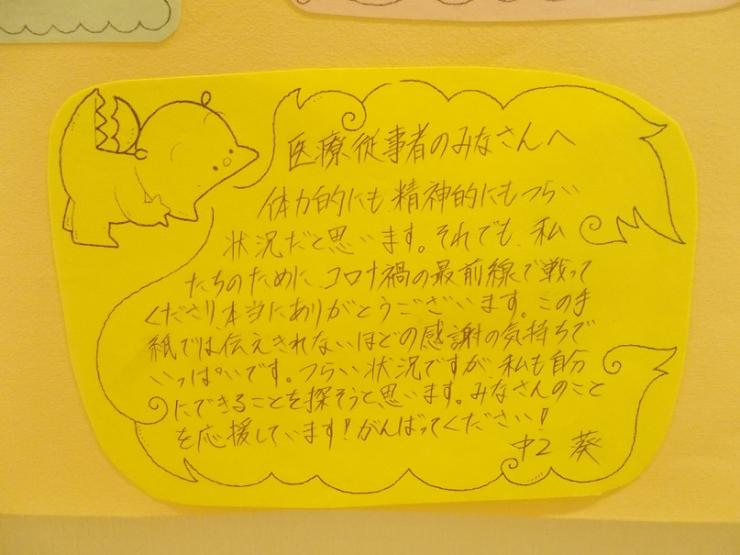 医療従事者のみなさんへ
体力的にも、精神的にもつらい
状況だと思います。それでも、私
たちのために、コロナ禍の最前線で戦って
くださり、本当にありがとうございます。この手
紙では伝えきれないほどの感謝の気持ちで
いっぱいです。つらい状況ですが、私も自分
にできることを探そうと思います。みなさんのこと
を応援しています!がんばってください!
中2 葵